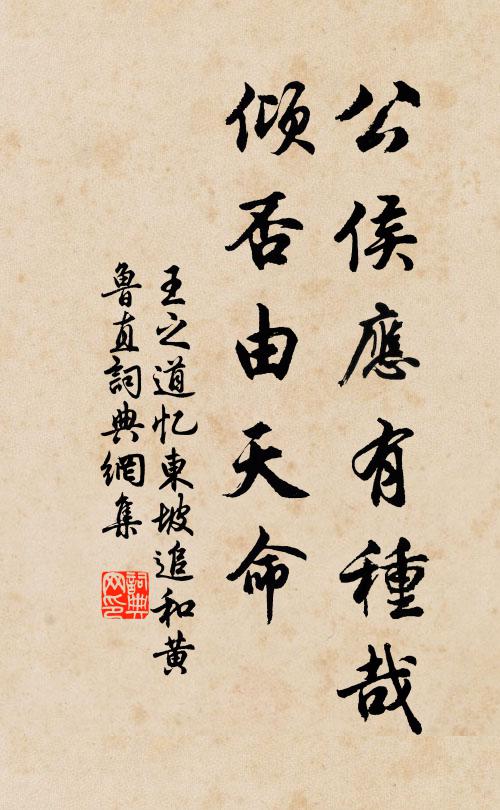 公侯應有種哉
傾否由天命
王之道忆東坡追和黄
魯直詞典網集
詞典
网印